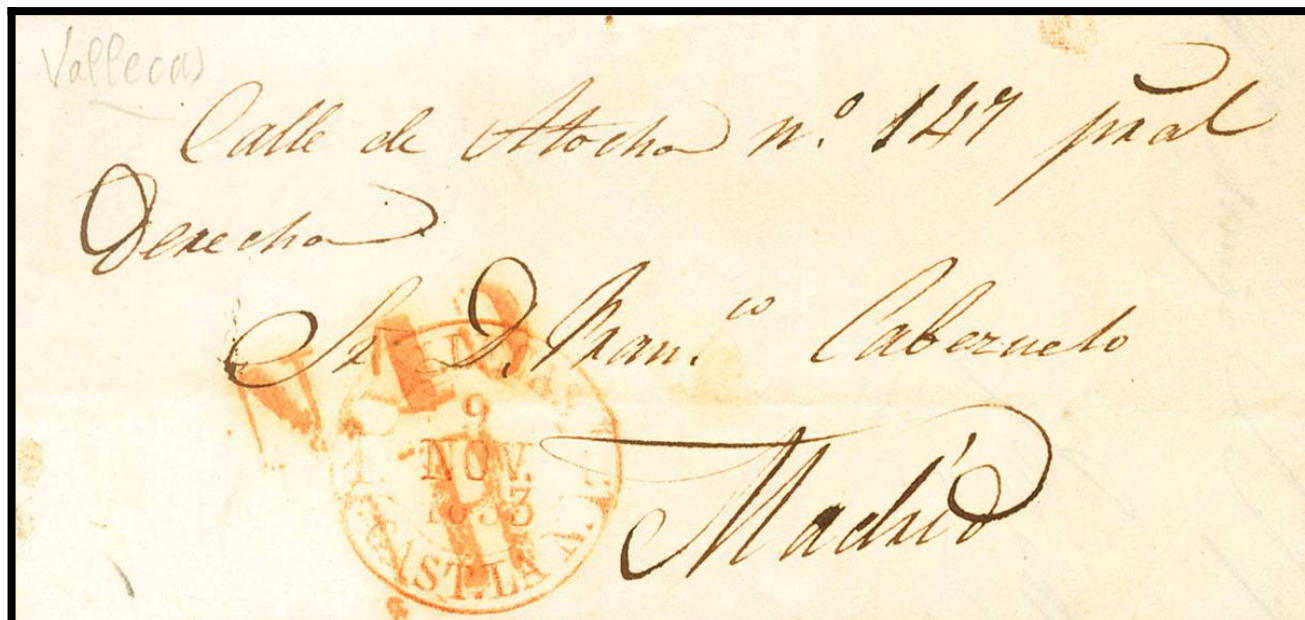 Vallecas
Calle de Atocha n.º 147 pral
Derecha
Sr D. Fran.co Cabezuelo
9
NOV.
1853
CAST. LA N.
Madrid